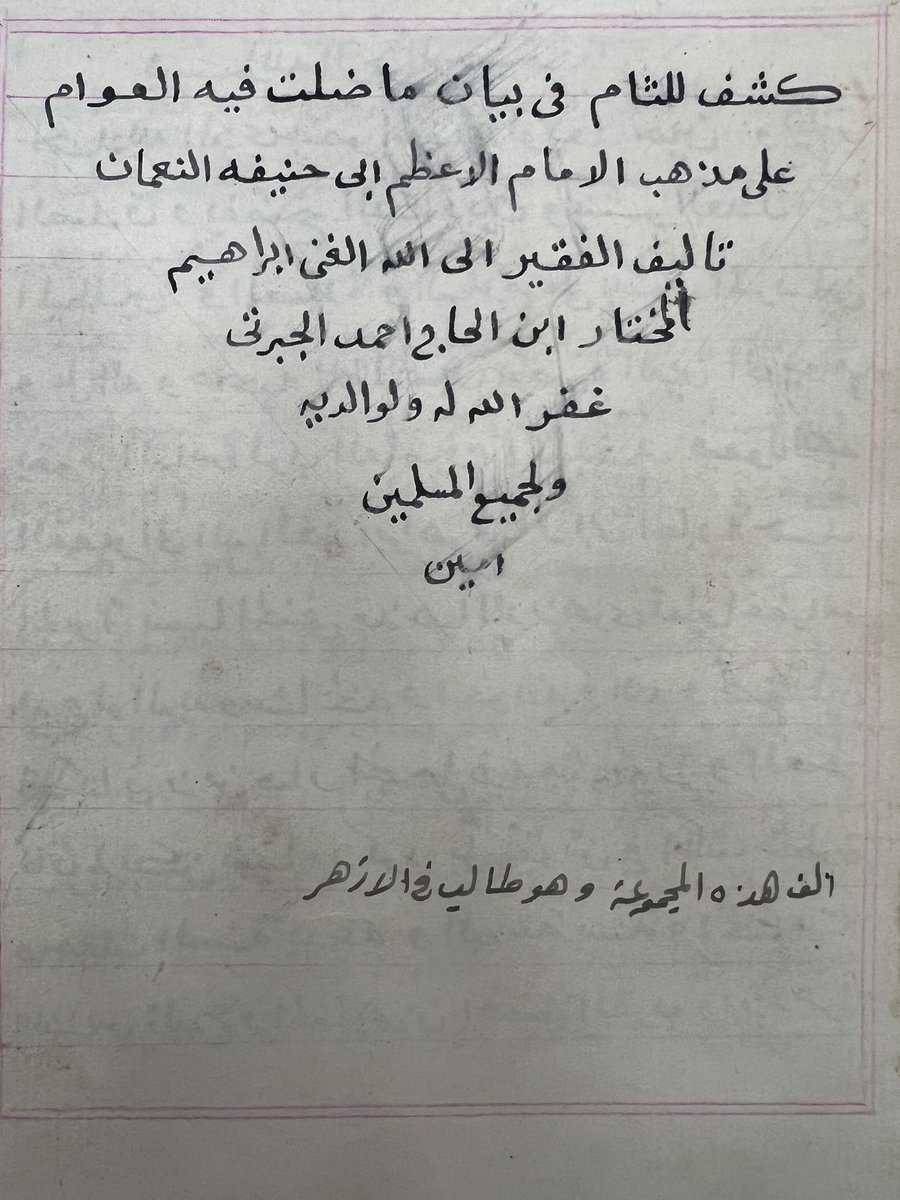 كشف للثام فى بيان ما ضلت فيه العوام
على مذهب الامام الاعظم ابى حنيفه النعمان
تاليف الفقير الى الله الغنى ابراهيم
المختار ابن الحاج احمد الجبرتى
غفر الله له ولوالديه
ولجميع المسلمين
امين
الف هذه المجموعة وهو طالب فى الازهر